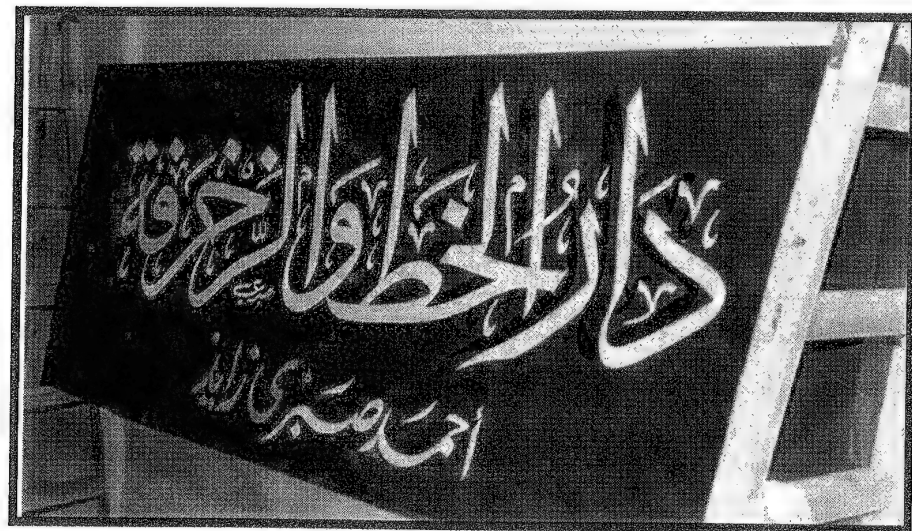 دار الخط والزخرفة
أحمد صبري زايد